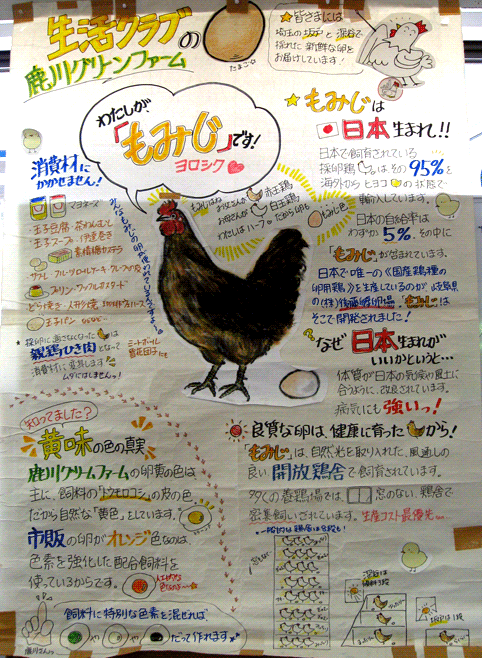 生活クラブの
鹿川グリーンファーム
たまご
★皆さまには
埼玉の坂戸と深谷で
採れた新鮮な卵を
お届けしています!
わたしが、
「もみじ」です!
ヨロシク
★もみじは
日本生まれ!!
日本で飼育されている
採卵鶏は、その95%を
海外からヒヨコの状態で
輸入しています。
日本の自給率は
わずか5%、その中に
「もみじ」が含まれています。
日本で唯一の《国産鶏種の
卵用鶏》を生産しているのが、岐阜県
の(株)後藤孵卵場。「もみじ」は
そこで開発されました!
なぜ日本生まれが
いいかというと…
体質が日本の気候や風土に
合うように、改良されています。
病気にも強いっ!
消費材に
かかせません!
マヨネーズ
玉子豆腐・茶わんむし
玉子スープ・伊達巻き
素精糖カステラ
プリン・ワッフルカスタード
どら焼き・人形焼
玉子パン
お父さんが
お母さんが
赤玉鶏
白玉鶏
わたしはハーフ
だから卵も
もみじ色
親鶏ひき肉となって
消費材に変身します
ムダにはしませんっ!
ミートボール
知ってました?
黄味の色の真実
鹿川グリームファームの卵黄の色は
主に、飼料の「トウモロコシ」の皮の色
だから自然な「黄色」をしています。
市販の卵がオレンジ色なのは
色素を強化した配合飼料を
使っているからです。
飼料に特別な色素を混ぜれば、
や
や
だって作れます
鹿川さん
良質な卵は、健康に育ったから!
「もみじ」は、自然光を取り入れた、風通しの
良い開放鶏舎で飼育されています。
多くの養鶏場では、窓のない鶏舎で
密集飼いされています。生産コスト最優先